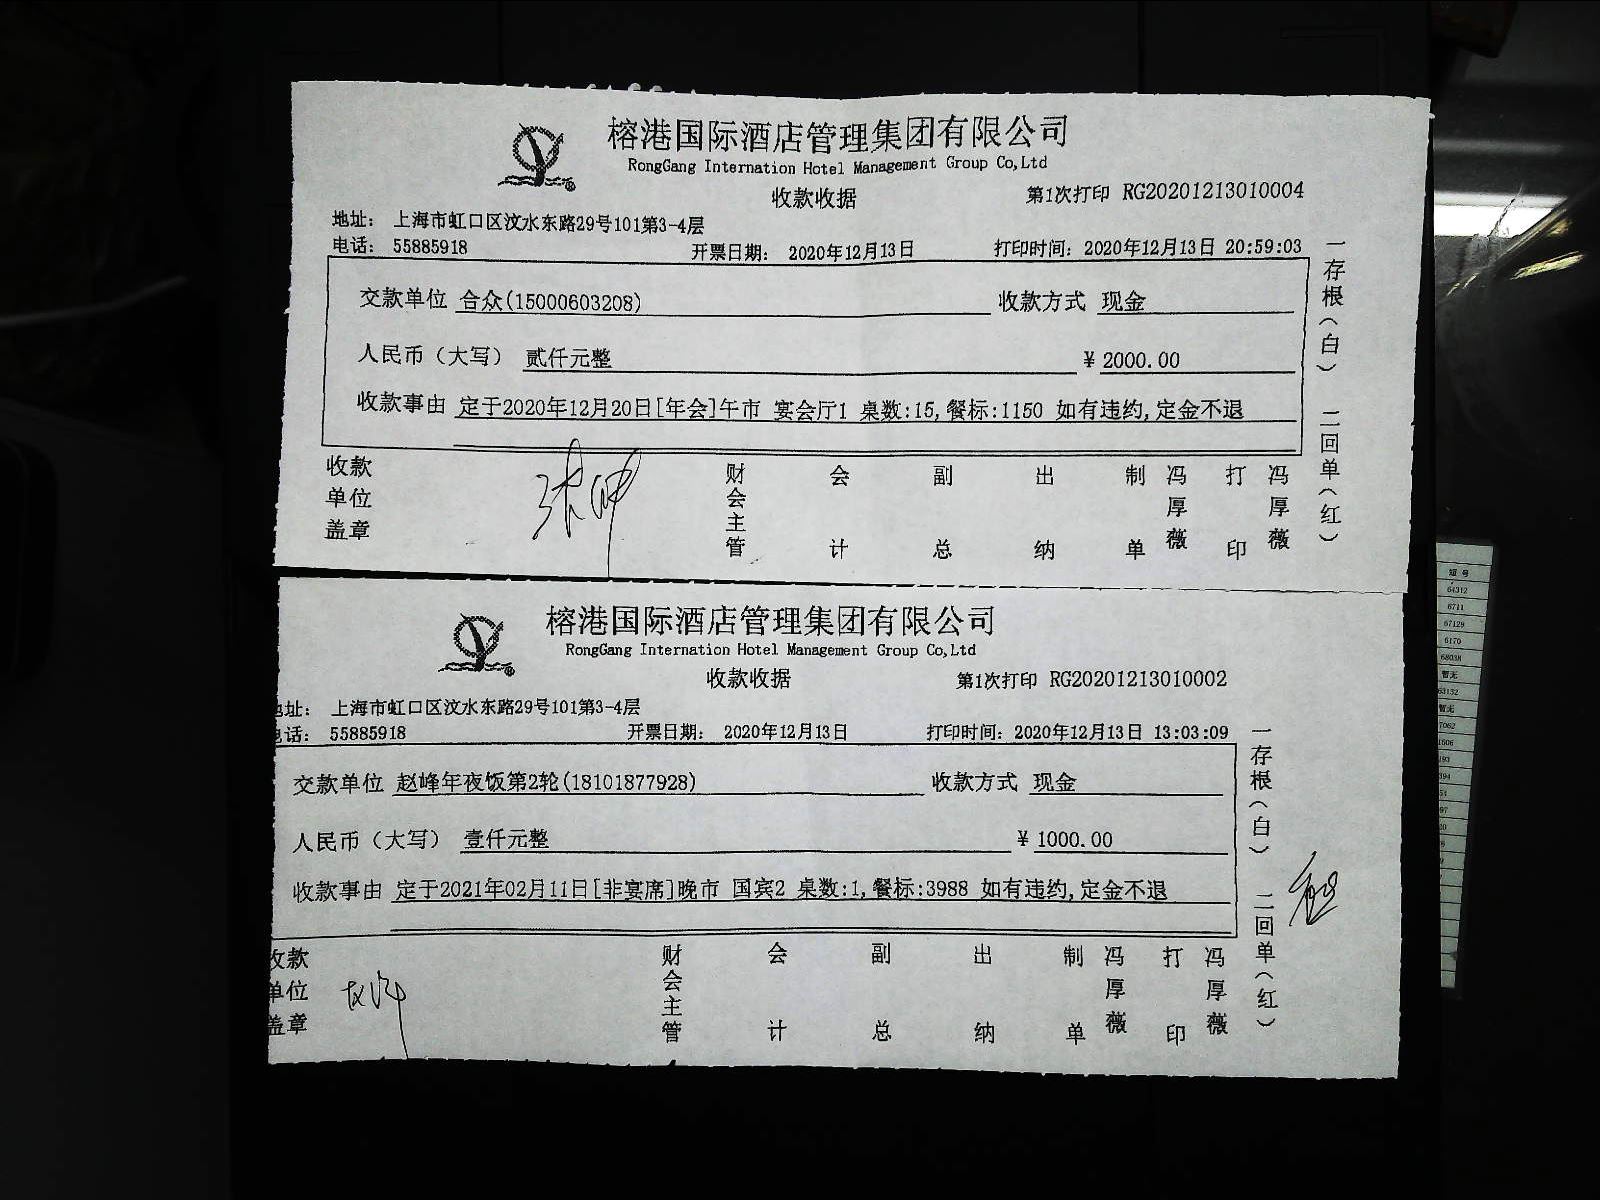 榕港国际酒店管理集团有限公司
RongGang Internation Hotel Management Group Co,Ltd
收款收据
第1次打印 RG20201213010004
地址： 上海市虹口区汶水东路29号101第3-4层
电话： 55885918 开票日期： 2020年12月13日 打印时间：2020年12月13日 20:59:03
交款单位 合众(15000603208) 收款方式 现金
人民币（大写） 贰仟元整 ¥ 2000.00
收款事由 定于2020年12月20日[年会]午市 宴会厅1 桌数:15,餐标:1150 如有违约,定金不退
收款单位盖章 财会主管 会计 副总 出纳 制单 冯厚薇 打印 冯厚薇
一存根（白） 二回单（红）
榕港国际酒店管理集团有限公司
RongGang Internation Hotel Management Group Co,Ltd
收款收据
第1次打印 RG20201213010002
地址： 上海市虹口区汶水东路29号101第3-4层
电话： 55885918 开票日期： 2020年12月13日 打印时间：2020年12月13日 13:03:09
交款单位 赵峰年夜饭第2轮(18101877928) 收款方式 现金
人民币（大写） 壹仟元整 ¥ 1000.00
收款事由 定于2021年02月11日[非宴席]晚市 国宾2 桌数:1,餐标:3988 如有违约,定金不退
收款单位盖章 财会主管 会计 副总 出纳 制单 冯厚薇 打印 冯厚薇
一存根（白） 二回单（红）
短号
64312
6711
67129
6170
暂无
63132
暂无